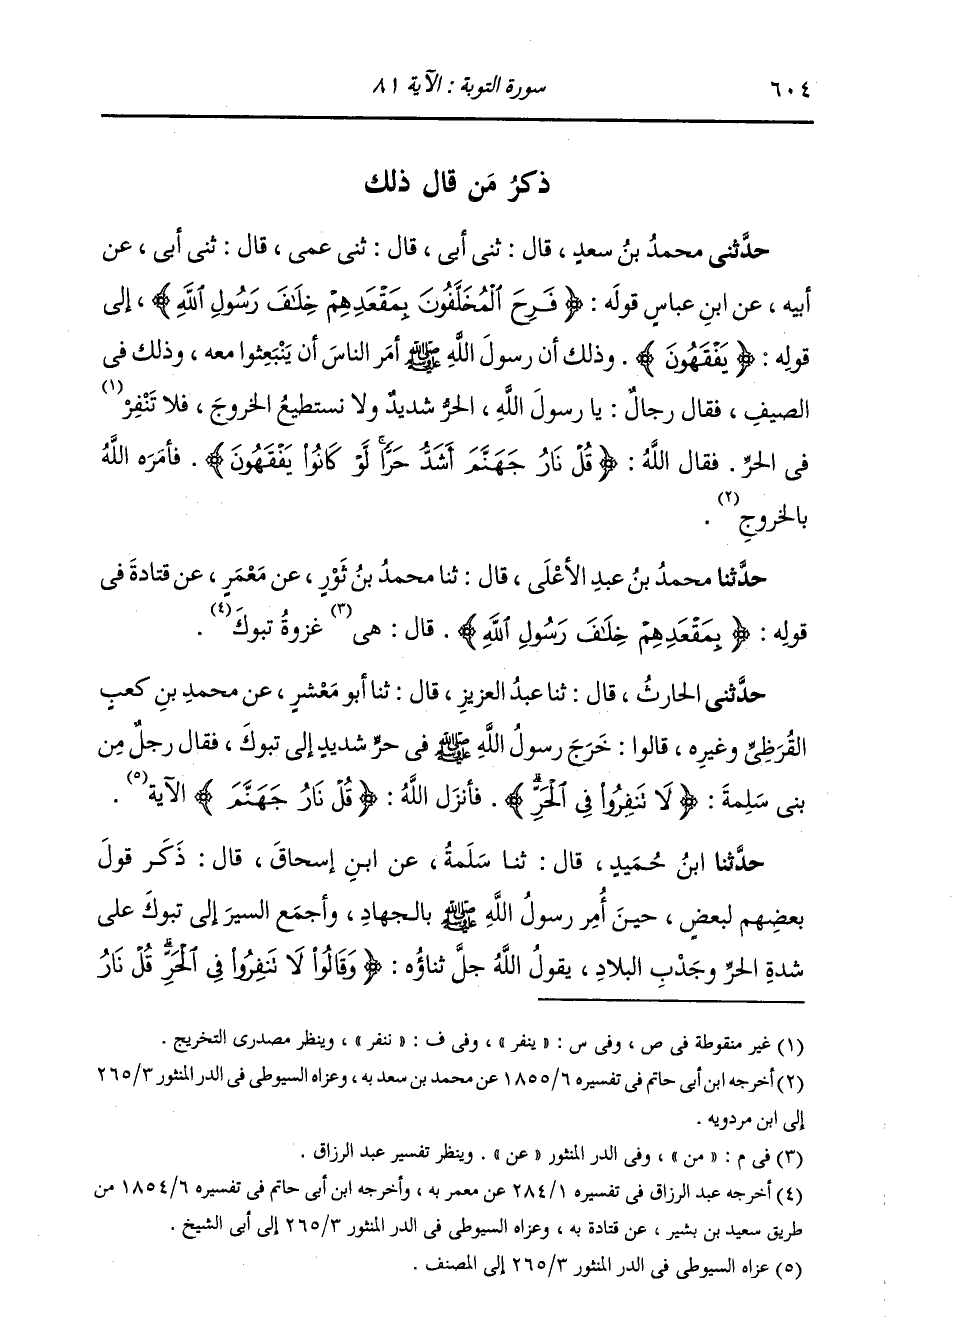 ٦٠٤ سورة التوبة : الآية ٨١
ذكرُ مَن قال ذلك
حدَّثنى محمدُ بنُ سعدٍ ، قال : ثنى أبى ، قال : ثنى عمى ، قال : ثنى أبى ، عن
أبيه ، عن ابنِ عباسٍ قولَه : ﴿ فَرِحَ ٱلْمُخَلَّفُونَ بِمَقْعَدِهِمْ خِلَٰفَ رَسُولِ ٱللَّهِ ﴾ ، إلى
قولِه : ﴿ يَفْقَهُونَ ﴾ . وذلك أن رسولَ اللَّهِ ﷺ أمَر الناسَ أن يَنْبَعِثوا معه ، وذلك فى
الصيفِ ، فقال رجالٌ : يا رسولَ اللَّهِ ، الحرُّ شديدٌ ولا نستطيعُ الخروجَ ، فلا تَنْفِرْ(١)
فى الحرِّ . فقال اللَّهُ : ﴿ قُلْ نَارُ جَهَنَّمَ أَشَدُّ حَرًّا ۚ لَّوْ كَانُوا۟ يَفْقَهُونَ ﴾ . فأمَره اللَّهُ
بالخروجِ(٢) .
حدَّثنا محمدُ بنُ عبدِ الأعْلَى ، قال : ثنا محمدُ بنُ ثَوْرٍ ، عن مَعْمَرٍ ، عن قتادةَ فى
قولِه : ﴿ بِمَقْعَدِهِمْ خِلَٰفَ رَسُولِ ٱللَّهِ ﴾ . قال : هى(٣) غزوةُ تبوكَ(٤) .
حدَّثنى الحارثُ ، قال : ثنا عبدُ العزيزِ ، قال : ثنا أبو مَعْشرٍ ، عن محمدِ بنِ كعبٍ
القُرَظِىِّ وغيرِه ، قالوا : خَرَجَ رسولُ اللَّهِ ﷺ فى حرٍّ شديدٍ إلى تبوكَ ، فقال رجلٌ مِن
بنى سَلِمةَ : ﴿ لَا تَنفِرُوا۟ فِى ٱلْحَرِّ ۗ ﴾ . فأنزَل اللَّهُ : ﴿ قُلْ نَارُ جَهَنَّمَ ﴾ الآية(٥) .
حدَّثنا ابنُ حُميدٍ ، قال : ثنا سَلَمةُ ، عن ابنِ إسحاقَ ، قال : ذَكَر قولَ
بعضِهم لبعضٍ ، حينَ أُمِر رسولُ اللَّهِ ﷺ بالجهادِ ، وأجمَع السيرَ إلى تبوكَ على
شدةِ الحرِّ وجَدْبِ البلادِ ، يقولُ اللَّهُ جلَّ ثناؤُه : ﴿ وَقَالُوا۟ لَا تَنفِرُوا۟ فِى ٱلْحَرِّ ۗ قُلْ نَارُ
(١) غير منقوطة فى ص ، وفى س : « ينفر » ، وفى ف : « ننفر » ، وينظر مصدرى التخريج .
(٢) أخرجه ابن أبى حاتم فى تفسيره ٦/ ١٨٥٥ عن محمد بن سعد به ، وعزاه السيوطى فى الدر المنثور ٣/ ٢٦٥
إلى ابن مردويه .
(٣) فى م : « من » ، وفى الدر المنثور « عن » . وينظر تفسير عبد الرزاق .
(٤) أخرجه عبد الرزاق فى تفسيره ١/ ٢٨٤ عن معمر به ، وأخرجه ابن أبى حاتم فى تفسيره ٦/ ١٨٥٤ من
طريق سعيد بن بشير ، عن قتادة به ، وعزاه السيوطى فى الدر المنثور ٣/ ٢٦٥ إلى أبى الشيخ .
(٥) عزاه السيوطى فى الدر المنثور ٣/ ٢٦٥ إلى المصنف .